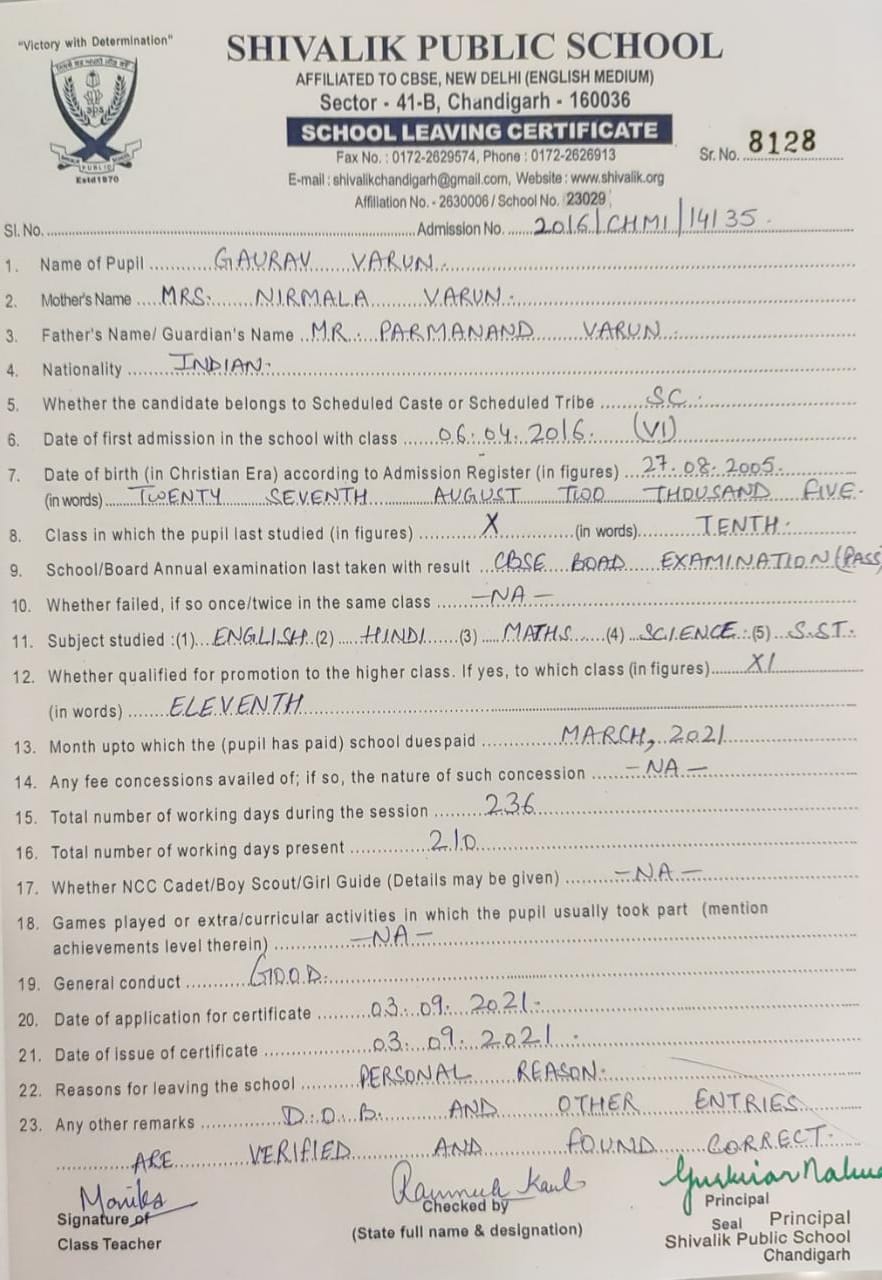 "Victory with Determination"
SHIVALIK PUBLIC SCHOOL
AFFILIATED TO CBSE, NEW DELHI (ENGLISH MEDIUM)
Sector - 41-B, Chandigarh - 160036
SCHOOL LEAVING CERTIFICATE
Fax No. : 0172-2629574, Phone : 0172-2626913
Sr. No. 8128
E-mail : shivalikchandigarh@gmail.com, Website : www.shivalik.org
Affiliation No. - 2630006 / School No. 23029
sps
PUBLIC
Estd1970
Sl. No. Admission No. 2016/CHM1/14135.
1. Name of Pupil GAURAV VARUN.
2. Mother's Name MRS. NIRMALA VARUN.
3. Father's Name/ Guardian's Name MR. PARMANAND VARUN.
4. Nationality INDIAN.
5. Whether the candidate belongs to Scheduled Caste or Scheduled Tribe SC.
6. Date of first admission in the school with class 06.04.2016. (VI)
7. Date of birth (in Christian Era) according to Admission Register (in figures) 27.08.2005.
(in words) TWENTY SEVENTH AUGUST TWO THOUSAND FIVE.
8. Class in which the pupil last studied (in figures) X (in words) TENTH.
9. School/Board Annual examination last taken with result CBSE BOAD EXAMINATION (PASS)
10. Whether failed, if so once/twice in the same class -NA-
11. Subject studied :(1) ENGLISH (2) HINDI (3) MATHS (4) SCIENCE (5) S.ST.
12. Whether qualified for promotion to the higher class. If yes, to which class (in figures) XI
(in words) ELEVENTH
13. Month upto which the (pupil has paid) school duespaid MARCH, 2021
14. Any fee concessions availed of; if so, the nature of such concession -NA-
15. Total number of working days during the session 236
16. Total number of working days present 210
17. Whether NCC Cadet/Boy Scout/Girl Guide (Details may be given) -NA-
18. Games played or extra/curricular activities in which the pupil usually took part (mention
achievements level therein) -NA-
19. General conduct GOOD.
20. Date of application for certificate 03.09.2021.
21. Date of issue of certificate 03.09.2021.
22. Reasons for leaving the school PERSONAL REASON.
23. Any other remarks D.O.B. AND OTHER ENTRIES
ARE VERIFIED AND FOUND CORRECT.
Monika
Signature of
Class Teacher
Kaul
Checked by
(State full name & designation)
Principal
Seal Principal
Shivalik Public School
Chandigarh